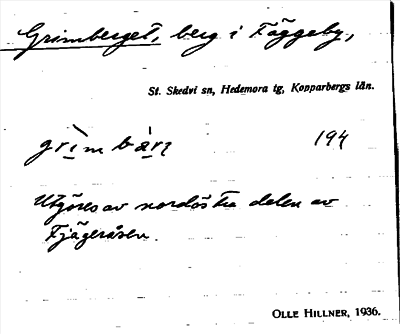 Grimberget, berg i Fäggeby,
St. Skedvi sn, Hedemora tg, Kopparbergs län.
grìmbàrɩ 194
Utgöres av nordöstra delen av
Fjägeråsen.
OLLE HILLNER, 1936.